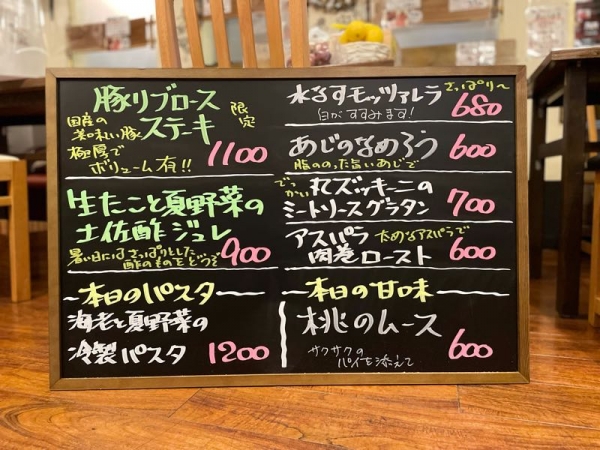 豚リブロース
ステーキ
限定
国産の
美味しい豚を
極厚で
ボリューム有!!
1100
生たこと夏野菜の
土佐酢ジュレ
暑い日にはさっぱりとした
酢のものをどうぞ
900
〜本日のパスタ
海老と夏野菜の
冷製パスタ 1200
水なすモッツァレラ
さっぱり〜
680
白がすすみます!
あじのなめろう 600
脂ののった旨いあじで
でっかい
丸ズッキーニの
ミートソースグラタン
700
アスパラ
太めなアスパラで
肉巻ロースト 600
本日の甘味
桃のムース
サクサクの
パイを添えて
600